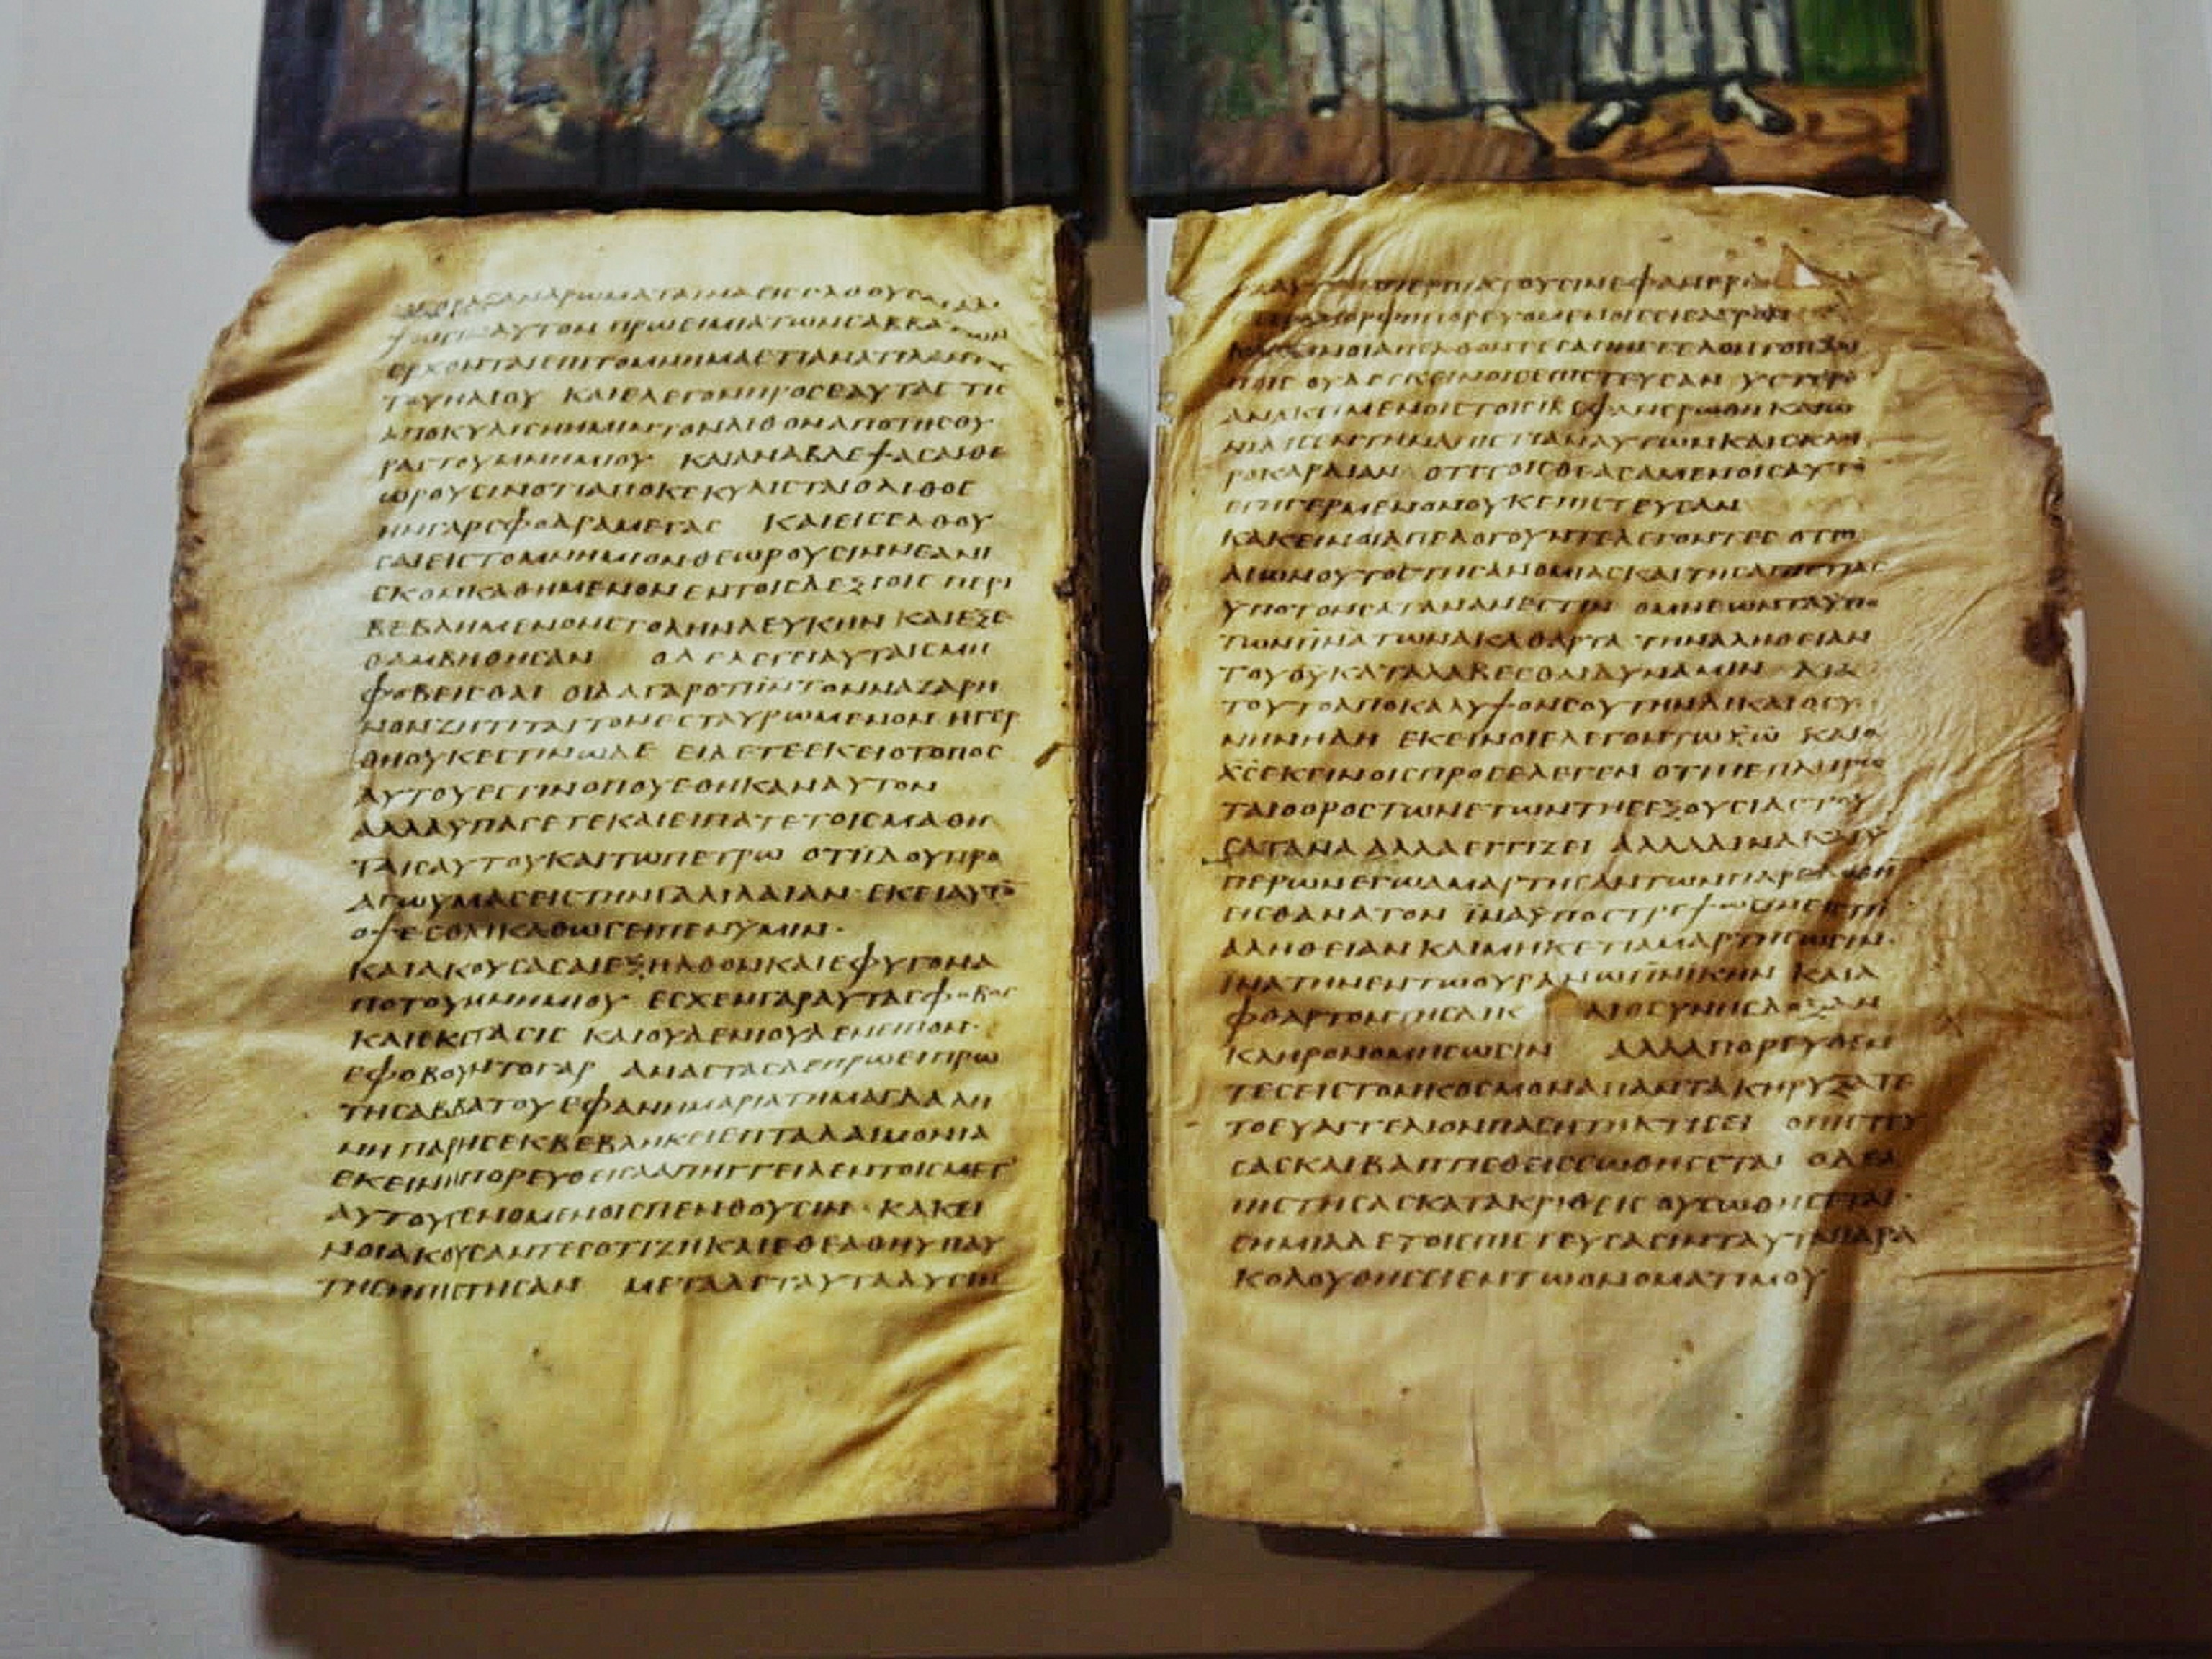 ΑΥΤΟΝ ΠΡΩΕΙΜΙΑΤΩΝϹΑΒΒΑ
ΕΡΧΟΝΤΑΙΕΠΙΤΟΜΝΗΜΑΕΤΙΑΝΑΤΙΛΑΝ
ΤΟΥΗΛΙΟΥ ΚΑΙΕΛΕΓΟΝΠΡΟϹΕΑΥΤΑϹ ΤΙϹ
ΑΠΟΚΥΛΙϹΗΗΜΙΝΤΟΝΛΙΘΟΝΑΠΟΤΗϹΘΥ
ΡΑϹΤΟΥΜΝΗΜΙΟΥ ΚΑΙΑΝΑΒΛΕΨΑϹΑΙΘΕ
ΩΡΟΥϹΙΝΟΤΙΑΠΟΚΕΚΥΛΙϹΤΑΙΟΛΙΘΟϹ
ΗΝΓΑΡϹΦΟΔΡΑΜΕΓΑϹ ΚΑΙΕΙϹΕΛΘΟΥ
ϹΑΙΕΙϹΤΟΜΝΗΜΙΟΝΘΕΩΡΟΥϹΙΝΝΕΑΝΙ
ϹΚΟΝΚΑΘΗΜΕΝΟΝΕΝΤΟΙϹΔΕΞΙΟΙϹ ΠΕΡΙ
ΒΕΒΛΗΜΕΝΟΝϹΤΟΛΗΝΛΕΥΚΗΝ ΚΑΙΕΞΕ
ΘΑΜΒΗΘΗϹΑΝ ΟΔΕΛΕΓΕΙΑΥΤΑΙϹΜΗ
ΦΟΒΕΙϹΘΑΙ ΟΙΔΑΓΑΡΟΤΙΙΝΤΟΝΝΑΖΑΡΗ
ΝΟΝΖΗΤΙΤΑΙΤΟΝΕϹΤΑΥΡΩΜΕΝΟΝ ΗΓΕΡ
ΘΗΟΥΚΕϹΤΙΝΩΔΕ ΕΙΔΕΤΕΕΚΕΙΟΤΟΠΟϹ
ΑΥΤΟΥΕϹΤΙΝΟΠΟΥΕΘΗΚΑΝΑΥΤΟΝ
ΑΛΛΑΫΠΑΓΕΤΕΚΑΙΕΙΠΑΤΕΤΟΙϹΜΑΘΗ
ΤΑΙϹΑΥΤΟΥΚΑΙΤΩΠΕΤΡΩ ΟΤΙΙΔΟΥΠΡΟ
ΑΓΩΥΜΑϹΕΙϹΤΗΝΓΑΛΙΛΑΙΑΝ· ΕΚΕΙΑΥΤΟ
ΟΨΕϹΘΑΙΚΑΘΩϹΕΙΠΕΝΥΜΙΝ·
ΚΑΙΑΚΟΥϹΑϹΑΙΕΞΗΛΘΟΝΚΑΙΕΦΥΓΟΝΑ
ΠΟΤΟΥΜΝΗΜΙΟΥ· ΕϹΧΕΝΓΑΡΑΥΤΑϹΦΟΒΟϹ
ΚΑΙΕΚϹΤΑϹΙϹ ΚΑΙΟΥΔΕΝΙΟΥΔΕΝΕΙΠΟΝ·
ΕΦΟΒΟΥΝΤΟΓΑΡ ΑΝΑϹΤΑϹΔΕΠΡΩΕΙΠΡΩ
ΤΗϹΑΒΒΑΤΟΥΕΦΑΝΗΜΑΡΙΑΤΗΜΑΓΔΑΛΗ
ΝΗ ΠΑΡΗϹΕΚΒΕΒΛΗΚΕΙΕΠΤΑΔΑΙΜΟΝΙΑ
ΕΚΕΙΝΗΠΟΡΕΥΘΕΙϹΑΑΠΗΓΓΕΙΛΕΝΤΟΙϹΜΕΤ
ΑΥΤΟΥΓΕΝΟΜΕΝΟΙϹΠΕΝΘΟΥϹΙΝ· ΚΑΚΕΙ
ΝΟΙΑΚΟΥϹΑΝΤΕϹΟΤΙΖΗΚΑΙΕΘΕΑΘΗΥΠΑΥ
ΤΗϹΗΠΙϹΤΗϹΑΝ ΜΕΤΑΔΕΤΑΥΤΑΔΥϹΙΝ
ΠΕΡΙΠΑΤΟΥϹΙΝΕΦΑΝΕΡΩ
ΠΟΡΕΥΟΜΕΝΟΙϹΕΙϹΑΓΡΟΝ
ΚΑΚΕΙΝΟΙΑΠΕΛΘΟΝΤΕϹΑΠΗΓΓΕΛΟΝΤΟΙϹΛΟΙ
ΠΟΙϹ ΟΥΔΕΕΚΕΙΝΟΙϹΕΠΙϹΤΕΥϹΑΝ ΥϹΤΕΡΟ
ΑΝΑΚΙΜΕΝΟΙϹΤΟΙϹΙΑ ΕΦΑΝΕΡΩΘΗ ΚΑΙΩ
ΝΙΔΙϹΕΝΤΗΝΑΠΙϹΤΙΑΝΑΥΤΩΝΚΑΙϹΚΛΗ
ΡΟΚΑΡΔΙΑΝ ΟΤΙΤΟΙϹΘΕΑϹΑΜΕΝΟΙϹΑΥΤΟ
ΕΓΗΓΕΡΜΕΝΟΝΟΥΚΕΠΙϹΤΕΥϹΑΝ
ΚΑΚΕΙΝΟΙΑΠΕΛΟΓΟΥΝΤΕΛΕΓΟΝΤΕϹ ΟΤΙΟ
ΑΙΩΝΟΥΤΟϹΤΗϹΑΝΟΜΙΑϹΚΑΙΤΗϹΑΠΙϹΤΙΑϹ
ΫΠΟΤΟΝϹΑΤΑΝΑΝΕϹΤΙΝ ΟΜΗΕΩΝΤΑΫΠΟ
ΤΩΝΠΝΑΤΩΝΑΚΑΘΑΡΤΑ ΤΗΝΑΛΗΘΕΙΑΝ
ΤΟΥΘΥΚΑΤΑΛΑΒΕϹΘΑΙΔΥΝΑΜΙΝ ΔΙΑ
ΤΟΥΤΟΑΠΟΚΑΛΥΨΟΝϹΟΥΤΗΝΔΙΚΑΙΟϹΥ
ΝΗΝΗΔΗ ΕΚΕΙΝΟΙΕΛΕΓΟΝΤΩΧΩ ΚΑΙΟ
ΧϹΕΚΕΙΝΟΙϹΠΡΟϹΕΛΕΓΕΝ ΟΤΙΠΕΠΛΗΡΩ
ΤΑΙΟΟΡΟϹΤΩΝΕΤΩΝΤΗϹΕΞΟΥϹΙΑϹΤΟΥ
ϹΑΤΑΝΑ ΑΛΛΑΕΓΓΙΖΕΙ ΑΛΛΑΔΙΝΑΚΑΙΥ
ΠΕΡΩΝΕΓΩΑΜΑΡΤΗϹΑΝΤΩΝΠΑΡΕΔΟΘΗ
ΕΙϹΘΑΝΑΤΟΝ ΪΝΑΫΠΟϹΤΡΕΨΩϹΙΝΕΙϹΤΗ
ΑΛΗΘΕΙΑΝΚΑΙΜΗΚΕΤΙΑΜΑΡΤΗϹΩϹΙΝ·
ΪΝΑΤΗΝΕΝΤΩΟΥΡΑΝΩΠΝΙΚΗΝ ΚΑΙΑ
ΦΘΑΡΤΟΝΤΗϹΔΙΚ ΑΙΟϹΥΝΗϹΔΟΞΑΝ
ΚΛΗΡΟΝΟΜΗϹΩϹΙΝ ΑΛΛΑΠΟΡΕΥΘΕΝ
ΤΕϹΕΙϹΤΟΝΚΟϹΜΟΝΑΠΑΝΤΑ ΚΗΡΥΞΑΤΕ
ΤΟΕΥΑΓΓΕΛΙΟΝΠΑϹΗΤΗΚΤΙϹΕΙ ΟΠΙϹΤΕΥ
ϹΑϹΚΑΙΒΑΠΤΙϹΘΕΙϹϹΩΘΗϹΕΤΑΙ ΟΔΕΑ
ΠΙϹΤΗϹΑϹΚΑΤΑΚΡΙΘΕΙϹ ΟΥϹΩΘΗϹΕΤΑΙ·
ϹΗΜΙΑΔΕΤΟΙϹΠΙϹΤΕΥϹΑϹΙΝΤΑΥΤΑΠΑΡΑ
ΚΟΛΟΥΘΗϹΕΙΕΝΤΩΟΝΟΜΑΤΙΜΟΥ